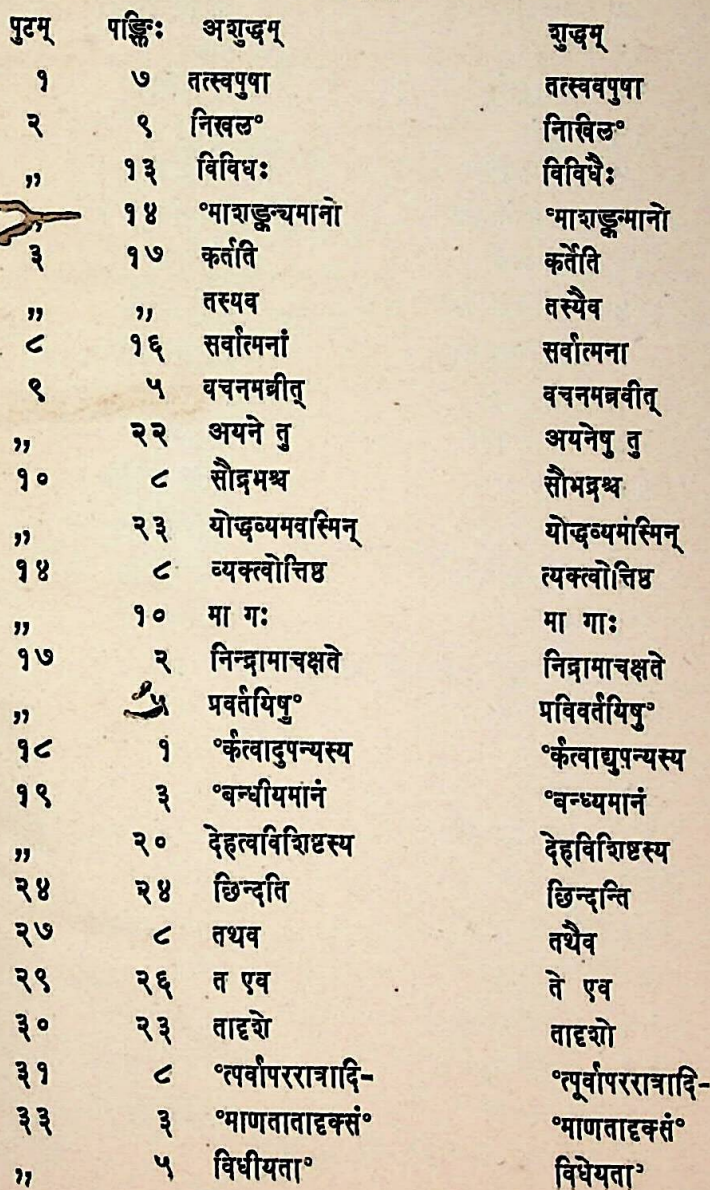 पुटम् पङ्क्तिः अशुद्धम् शुद्धम्
१ ७ तत्स्वपुषा तत्स्ववपुषा
२ ९ निखल° निखिल°
,, १३ विविधः विविधैः
,, १४ °माशङ्कन्यमानो °माशङ्कन्मानो
३ १७ कर्तति कर्तेति
,, ,, तस्यव तस्यैव
८ १६ सर्वात्मनां सर्वात्मना
९ ५ वचनमब्रीत् वचनमब्रवीत्
,, २२ अयने तु अयनेषु तु
१० ८ सौद्रभश्च सौभद्रश्च
,, २३ योद्धव्यमवास्मिन् योद्धव्यमस्मिन्
१४ ८ व्यक्त्वोत्तिष्ठ त्यक्त्वोत्तिष्ठ
,, १० मा गः मा गाः
१७ २ निन्द्रामाचक्षते निद्रामाचक्षते
,, ५ प्रवर्तयिषु° प्रविवर्तयिषु°
१८ १ °र्कत्वादुपन्यस्य °र्कत्वाद्युपन्यस्य
१९ ३ °बन्धीयमानं °बन्ध्यमानं
,, २० देहत्वविशिष्टस्य देहविशिष्टस्य
२४ २४ छिन्दति छिन्दन्ति
२७ ८ तथव तथैव
२९ २६ त एव ते एव
३० २३ तादृशे तादृशो
३१ ८ °त्पर्वापररात्रादि- °त्पूर्वापररात्रादि-
३३ ३ °माणतातादृक्सं° °माणतादृक्सं°
,, ५ विधीयता° विधेयता°